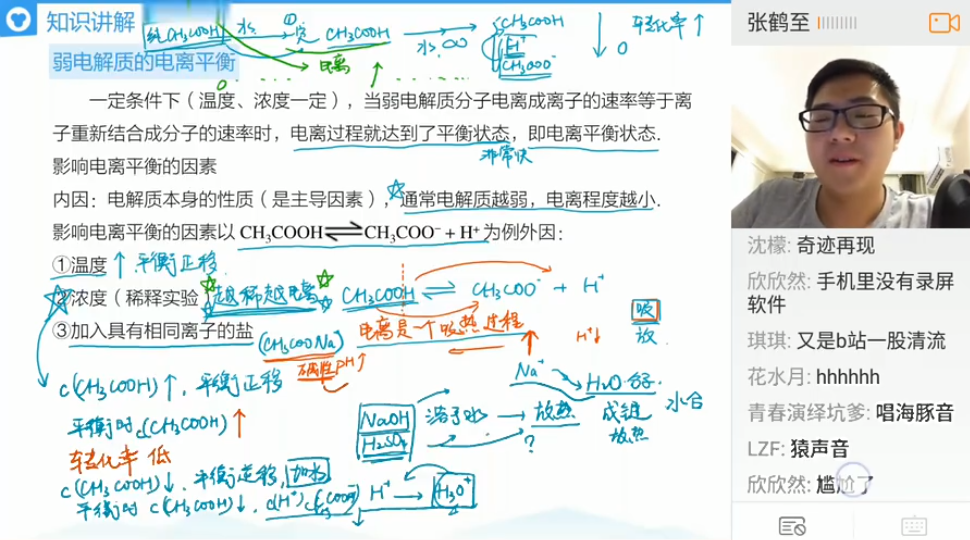 知识讲解
纯CH₃COOH 水 ① CH₃COOH 水.∞ CH₃COOH
H⁺
CH₃COO⁻
0
转化率↑
弱电解质的电离平衡
电离 ↑
0
一定条件下（温度、浓度一定），当弱电解质分子电离成离子的速率等于离
子重新结合成分子的速率时，电离过程就达到了平衡状态，即电离平衡状态.
非常快
影响电离平衡的因素
内因：电解质本身的性质（是主导因素），通常电解质越弱，电离程度越小.
影响电离平衡的因素以CH₃COOH⇌CH₃COO⁻+H⁺为例外因：
①温度↑ 平衡正移.
②浓度（稀释实验）越稀越电离 CH₃COOH ⇌ CH₃COO⁻ + H⁺
③加入具有相同离子的盐 (CH₃COONa) 电离是一个吸热过程 ↑ H⁺↓
吸
放
碱性 pH↑
c(CH₃COOH)↑, 平衡正移
平衡时 c(CH₃COOH)↑
转化率 低
c(CH₃COOH)↓, 平衡逆移, 加水
平衡时 c(CH₃COOH)↓.
H⁺ → H₃O⁺
NaOH
H₂SO₄
溶于水 → 放热
?
Na⁺ H₂O分子. 水合
成键
放热
张鹤至
沈檬: 奇迹再现
欣欣然: 手机里没有录屏
软件
琪琪: 又是b站一股清流
花水月: hhhhhh
青春演绎坑爹: 唱海豚音
LZF: 猿声音
欣欣然: 尴尬了